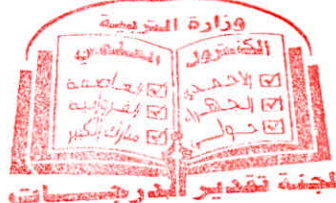 وزارة التربية
الكنترول
الأحمدي
الجهراء
حولي
العاصمة
الفروانية
مبارك الكبير
لجنة تقدير الدرجات